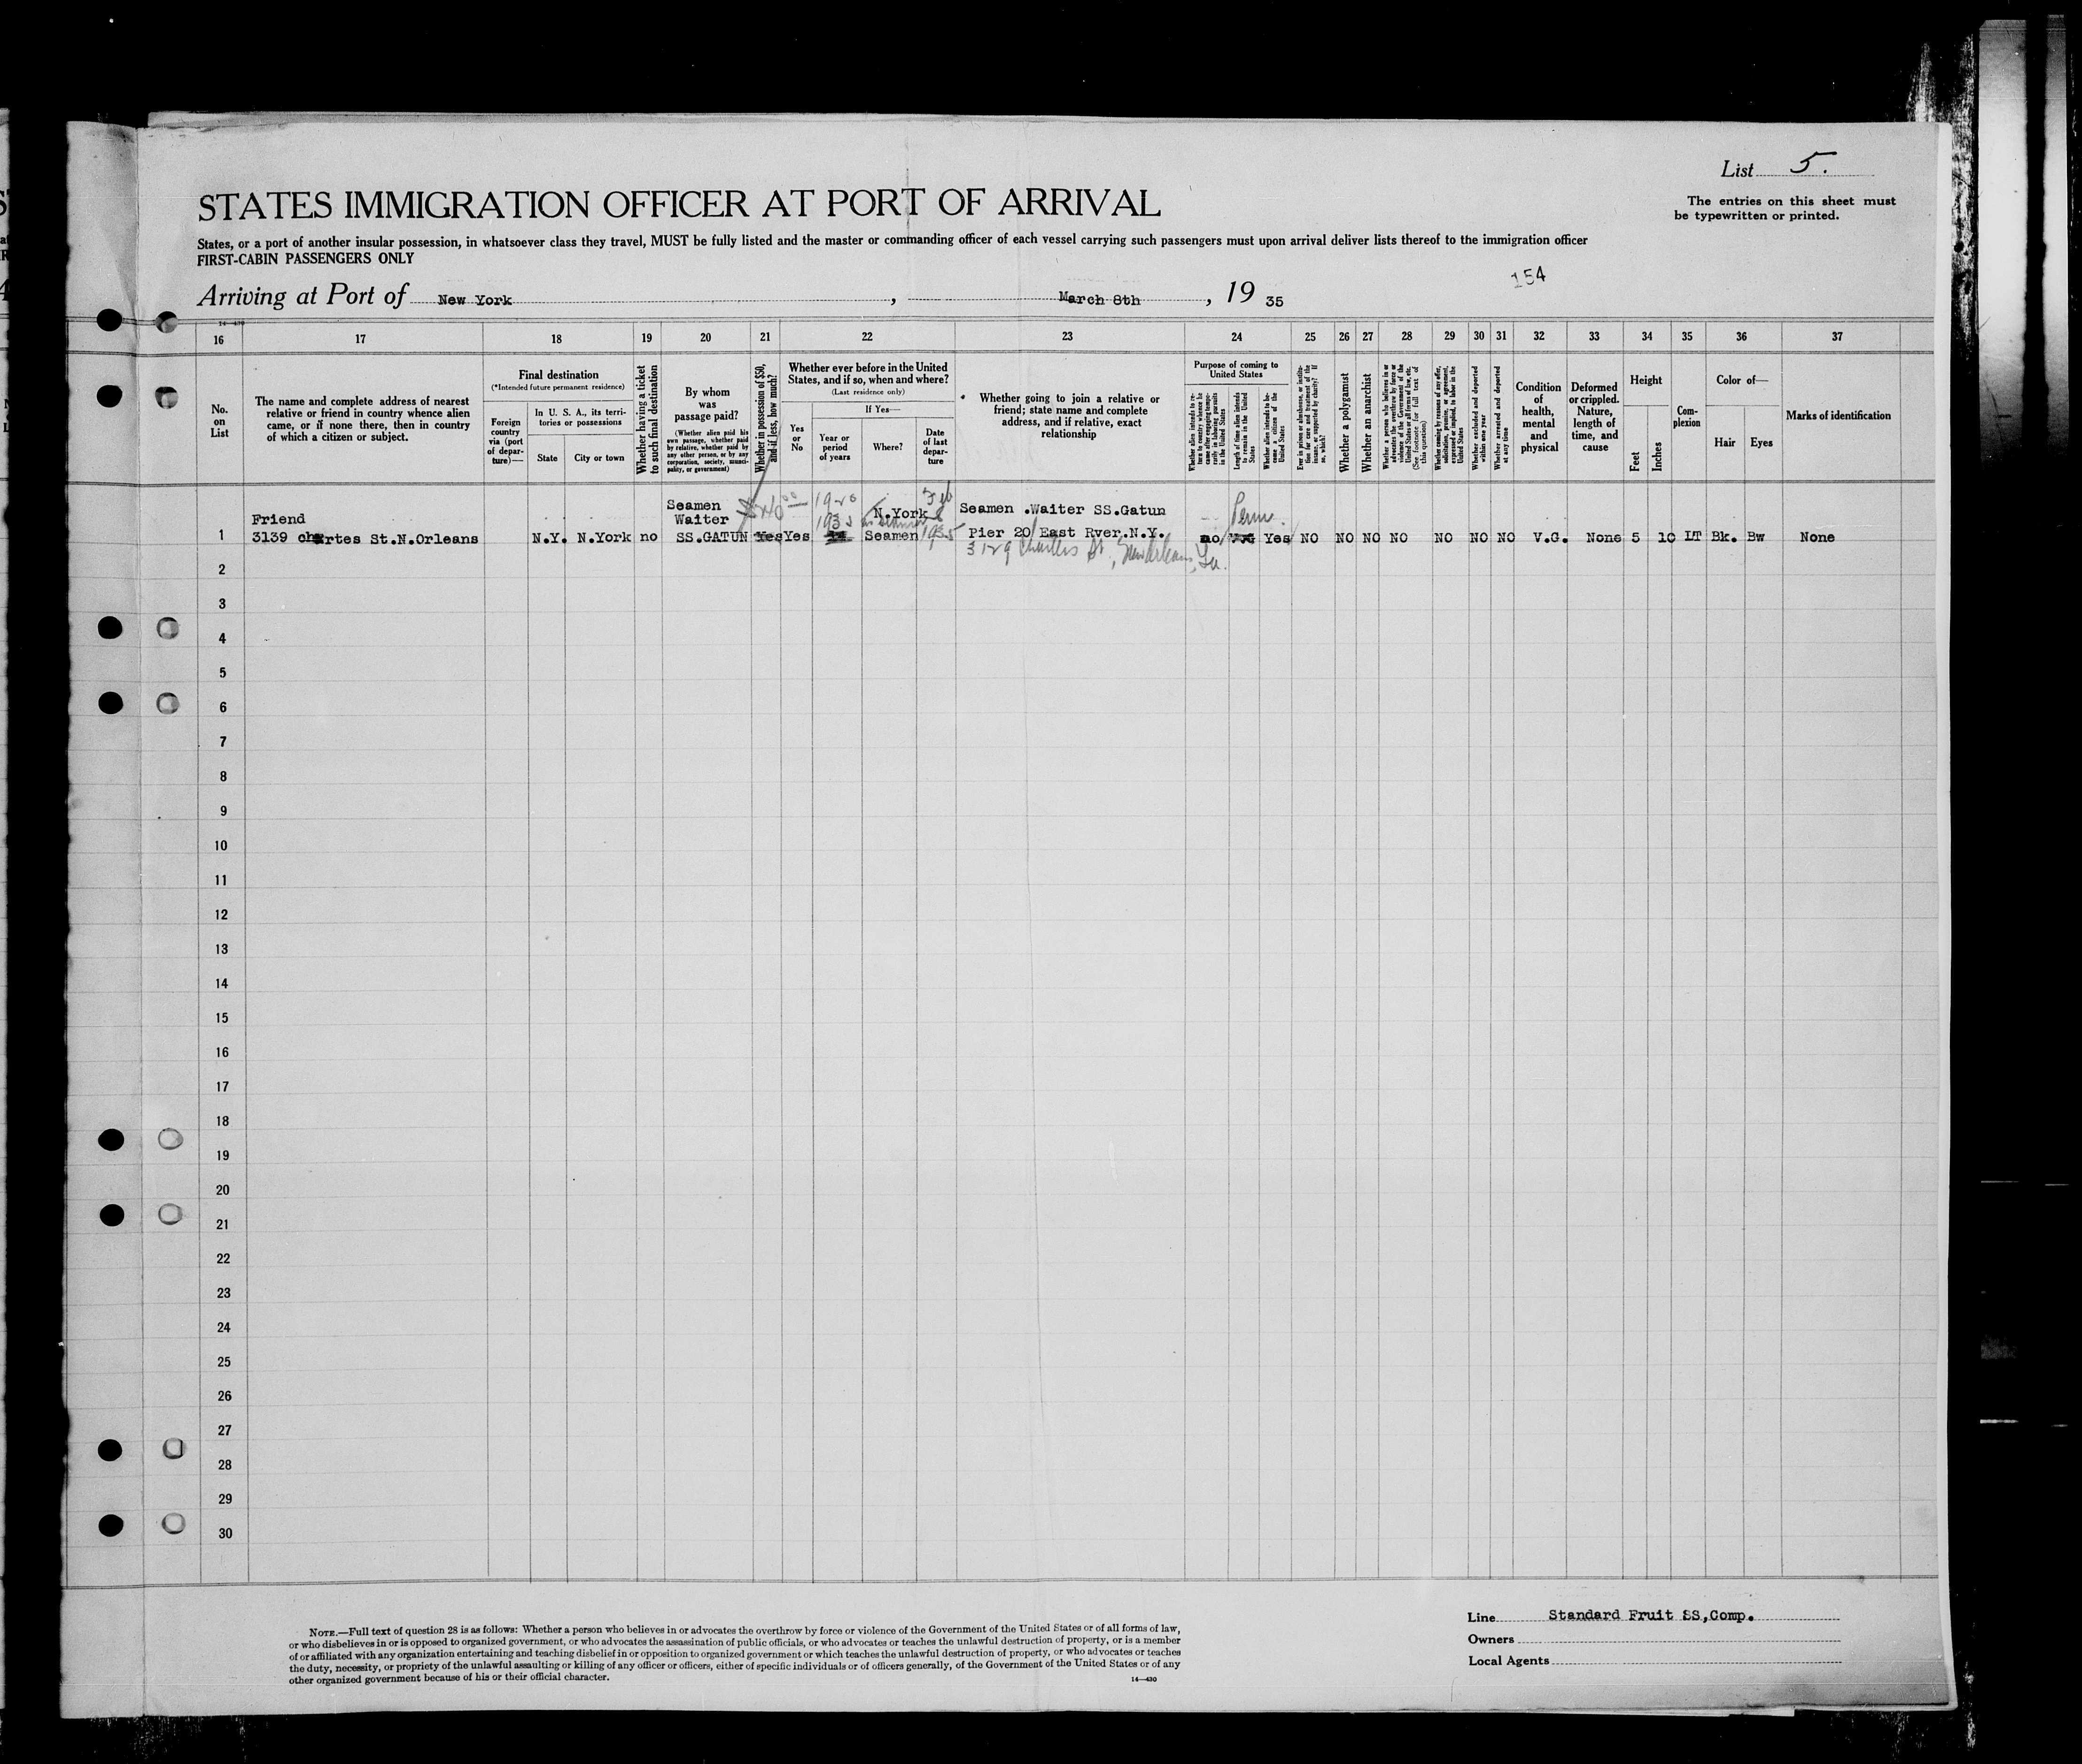 List 5.
The entries on this sheet must
be typewritten or printed.
STATES IMMIGRATION OFFICER AT PORT OF ARRIVAL
States, or a port of another insular possession, in whatsoever class they travel, MUST be fully listed and the master or commanding officer of each vessel carrying such passengers must upon arrival deliver lists thereof to the immigration officer
FIRST-CABIN PASSENGERS ONLY
154
Arriving at Port of New York , March 8th , 19 35
14—430
16 17 18 19 20 21 22 23 24 25 26 27 28 29 30 31 32 33 34 35 36 37
No.
on
List
The name and complete address of nearest
relative or friend in country whence alien
came, or if none there, then in country
of which a citizen or subject.
Final destination
(*Intended future permanent residence)
Foreign
country
via (port
of depar-
ture)—
In U. S. A., its terri-
tories or possessions
State
City or town
Whether having a ticket
to such final destination
By whom
was
passage paid?
(Whether alien paid his
own passage, whether paid
by relative, whether paid by
any other person, or by any
corporation, society, munici-
pality, or government)
Whether in possession of $50,
and if less, how much?
Whether ever before in the United
States, and if so, when and where?
(Last residence only)
Yes
or
No
If Yes—
Year or
period
of years
Where?
Date
of last
depar-
ture
* Whether going to join a relative or
friend; state name and complete
address, and if relative, exact
relationship
Purpose of coming to
United States
Whether alien intends to re-
turn to country whence he
came after engaging tempo-
rarily in laboring pursuits
in the United States
Length of time alien intends
to remain in the United
States
Whether alien intends to be-
come a citizen of the
United States
Ever in prison or almshouse, or institu-
tion for care and treatment of the
insane, or supported by charity? If
so, which?
Whether a polygamist
Whether an anarchist
Whether a person who believes in or
advocates the overthrow by force or
violence of the Government of the
United States or all forms of law, etc.
(See footnote for full text of
this question)
Whether coming by reasons of any offer,
solicitation, promise, or agreement,
expressed or implied, to labor in the
United States
Whether excluded and deported
within one year
Whether arrested and deported
at any time
Condition
of
health,
mental
and
physical
Deformed
or crippled.
Nature,
length of
time, and
cause
Height
Feet
Inches
Com-
plexion
Color of—
Hair Eyes
Marks of identification
Friend
Seamen
Waiter
$40.00
1920
1933
N.York
Feb
8
1935
Seamen .Waiter SS.Gatun
Perm.
1 3139 chartes St.N.Orleans N.Y. N.York no SS.GATUN Yes Yes Seamen Pier 20 East Rver.N.Y. no Yes NO NO NO NO NO NO NO V.G. None 5 10 LT Bk. Bw None
3129 Charters St., New Orleans, La.
2
3
4
5
6
7
8
9
10
11
12
13
14
15
16
17
18
19
20
21
22
23
24
25
26
27
28
29
30
NOTE.—Full text of question 28 is as follows: Whether a person who believes in or advocates the overthrow by force or violence of the Government of the United States or of all forms of law,
or who disbelieves in or is opposed to organized government, or who advocates the assassination of public officials, or who advocates or teaches the unlawful destruction of property, or is a member
of or affiliated with any organization entertaining and teaching disbelief in or opposition to organized government or which teaches the unlawful destruction of property, or who advocates or teaches
the duty, necessity, or propriety of the unlawful assaulting or killing of any officer or officers, either of specific individuals or of officers generally, of the Government of the United States or of any
other organized government because of his or their official character.
14—430
Line Standard Fruit SS,Comp.
Owners
Local Agents